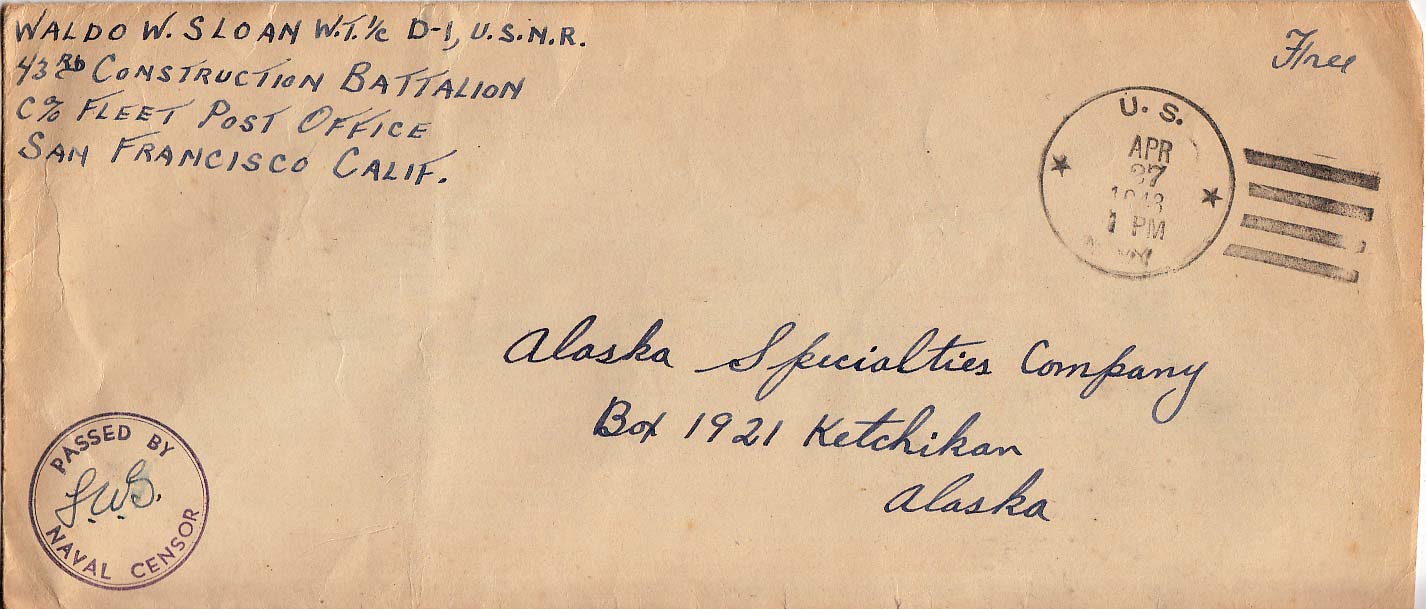 WALDO W. SLOAN W.T. 1/c D-1, U.S.N.R.
43RD CONSTRUCTION BATTALION
C/O FLEET POST OFFICE
SAN FRANCISCO CALIF.
Free
U. S.
APR
27
1943
1 PM
NAVY
Alaska Specialties Company
Box 1921 Ketchikan
Alaska
PASSED BY
NAVAL CENSOR